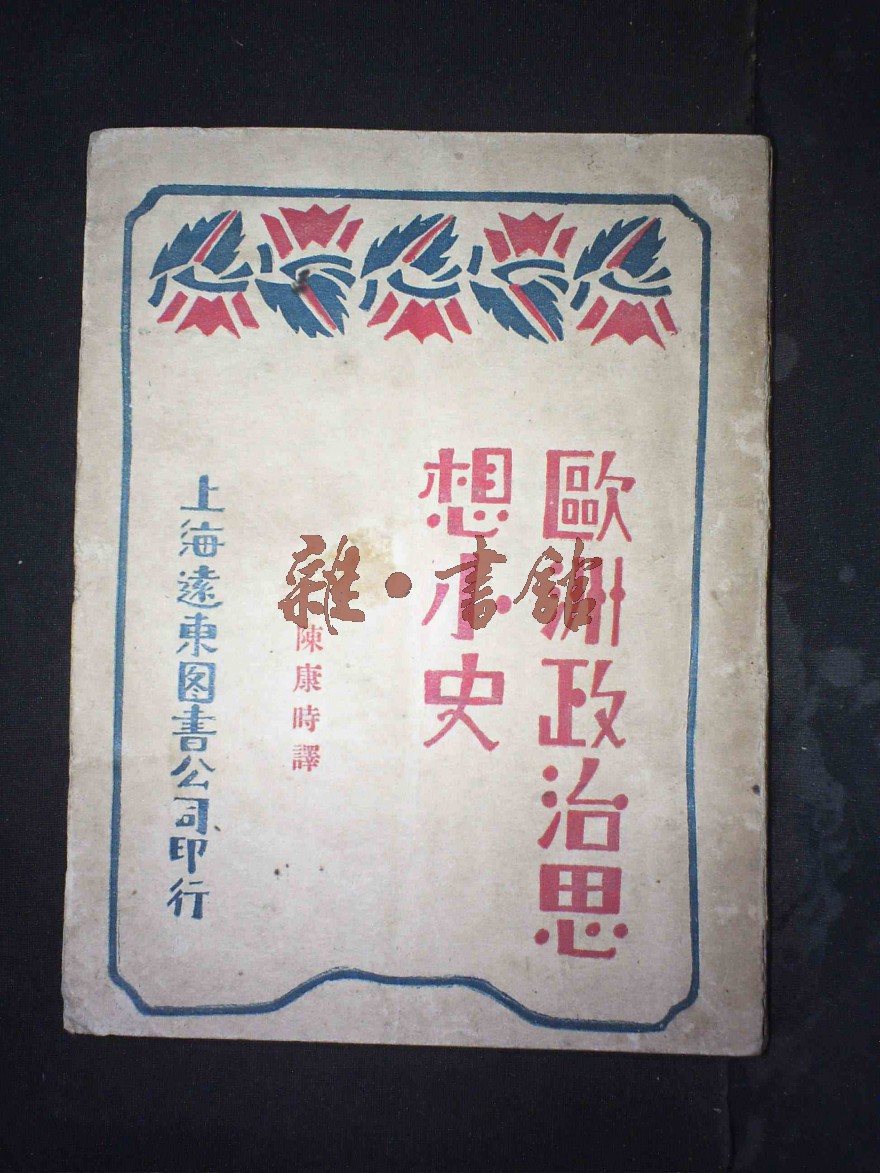 歐洲政治思
想小史
陳康時譯
上海遠東图書公司印行
雜·書館